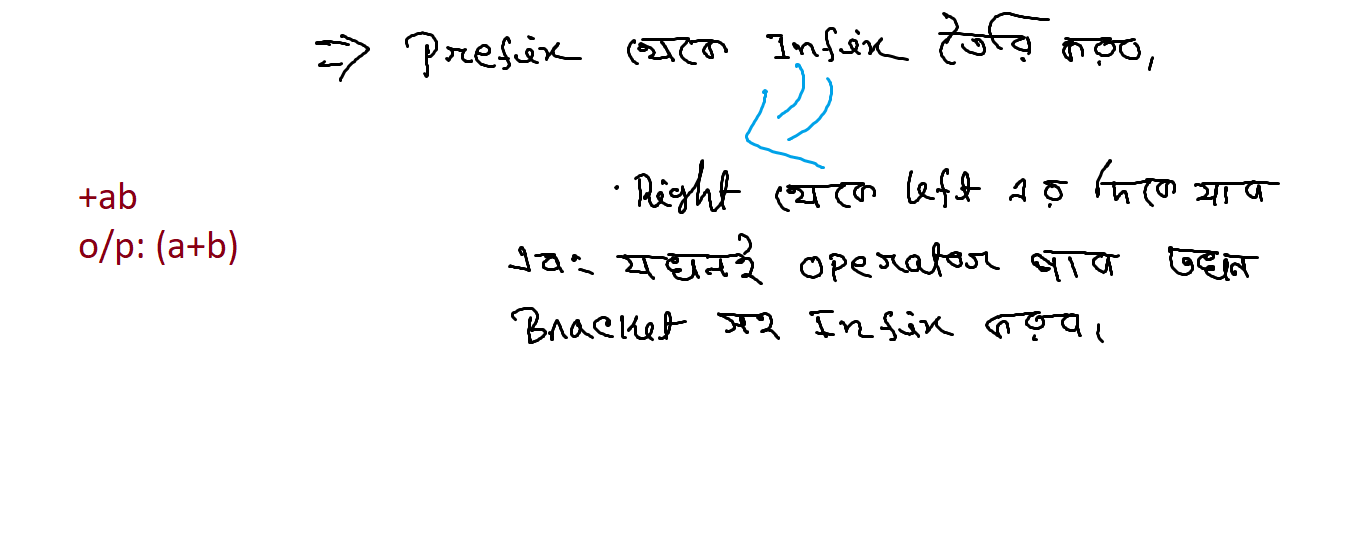 => Prefix থেকে Infix তৈরি করব,
+ab
o/p: (a+b)
· Right থেকে left এর দিকে যাব
এবং যখনই operator পাব তখন
Bracket সহ Infix করব।